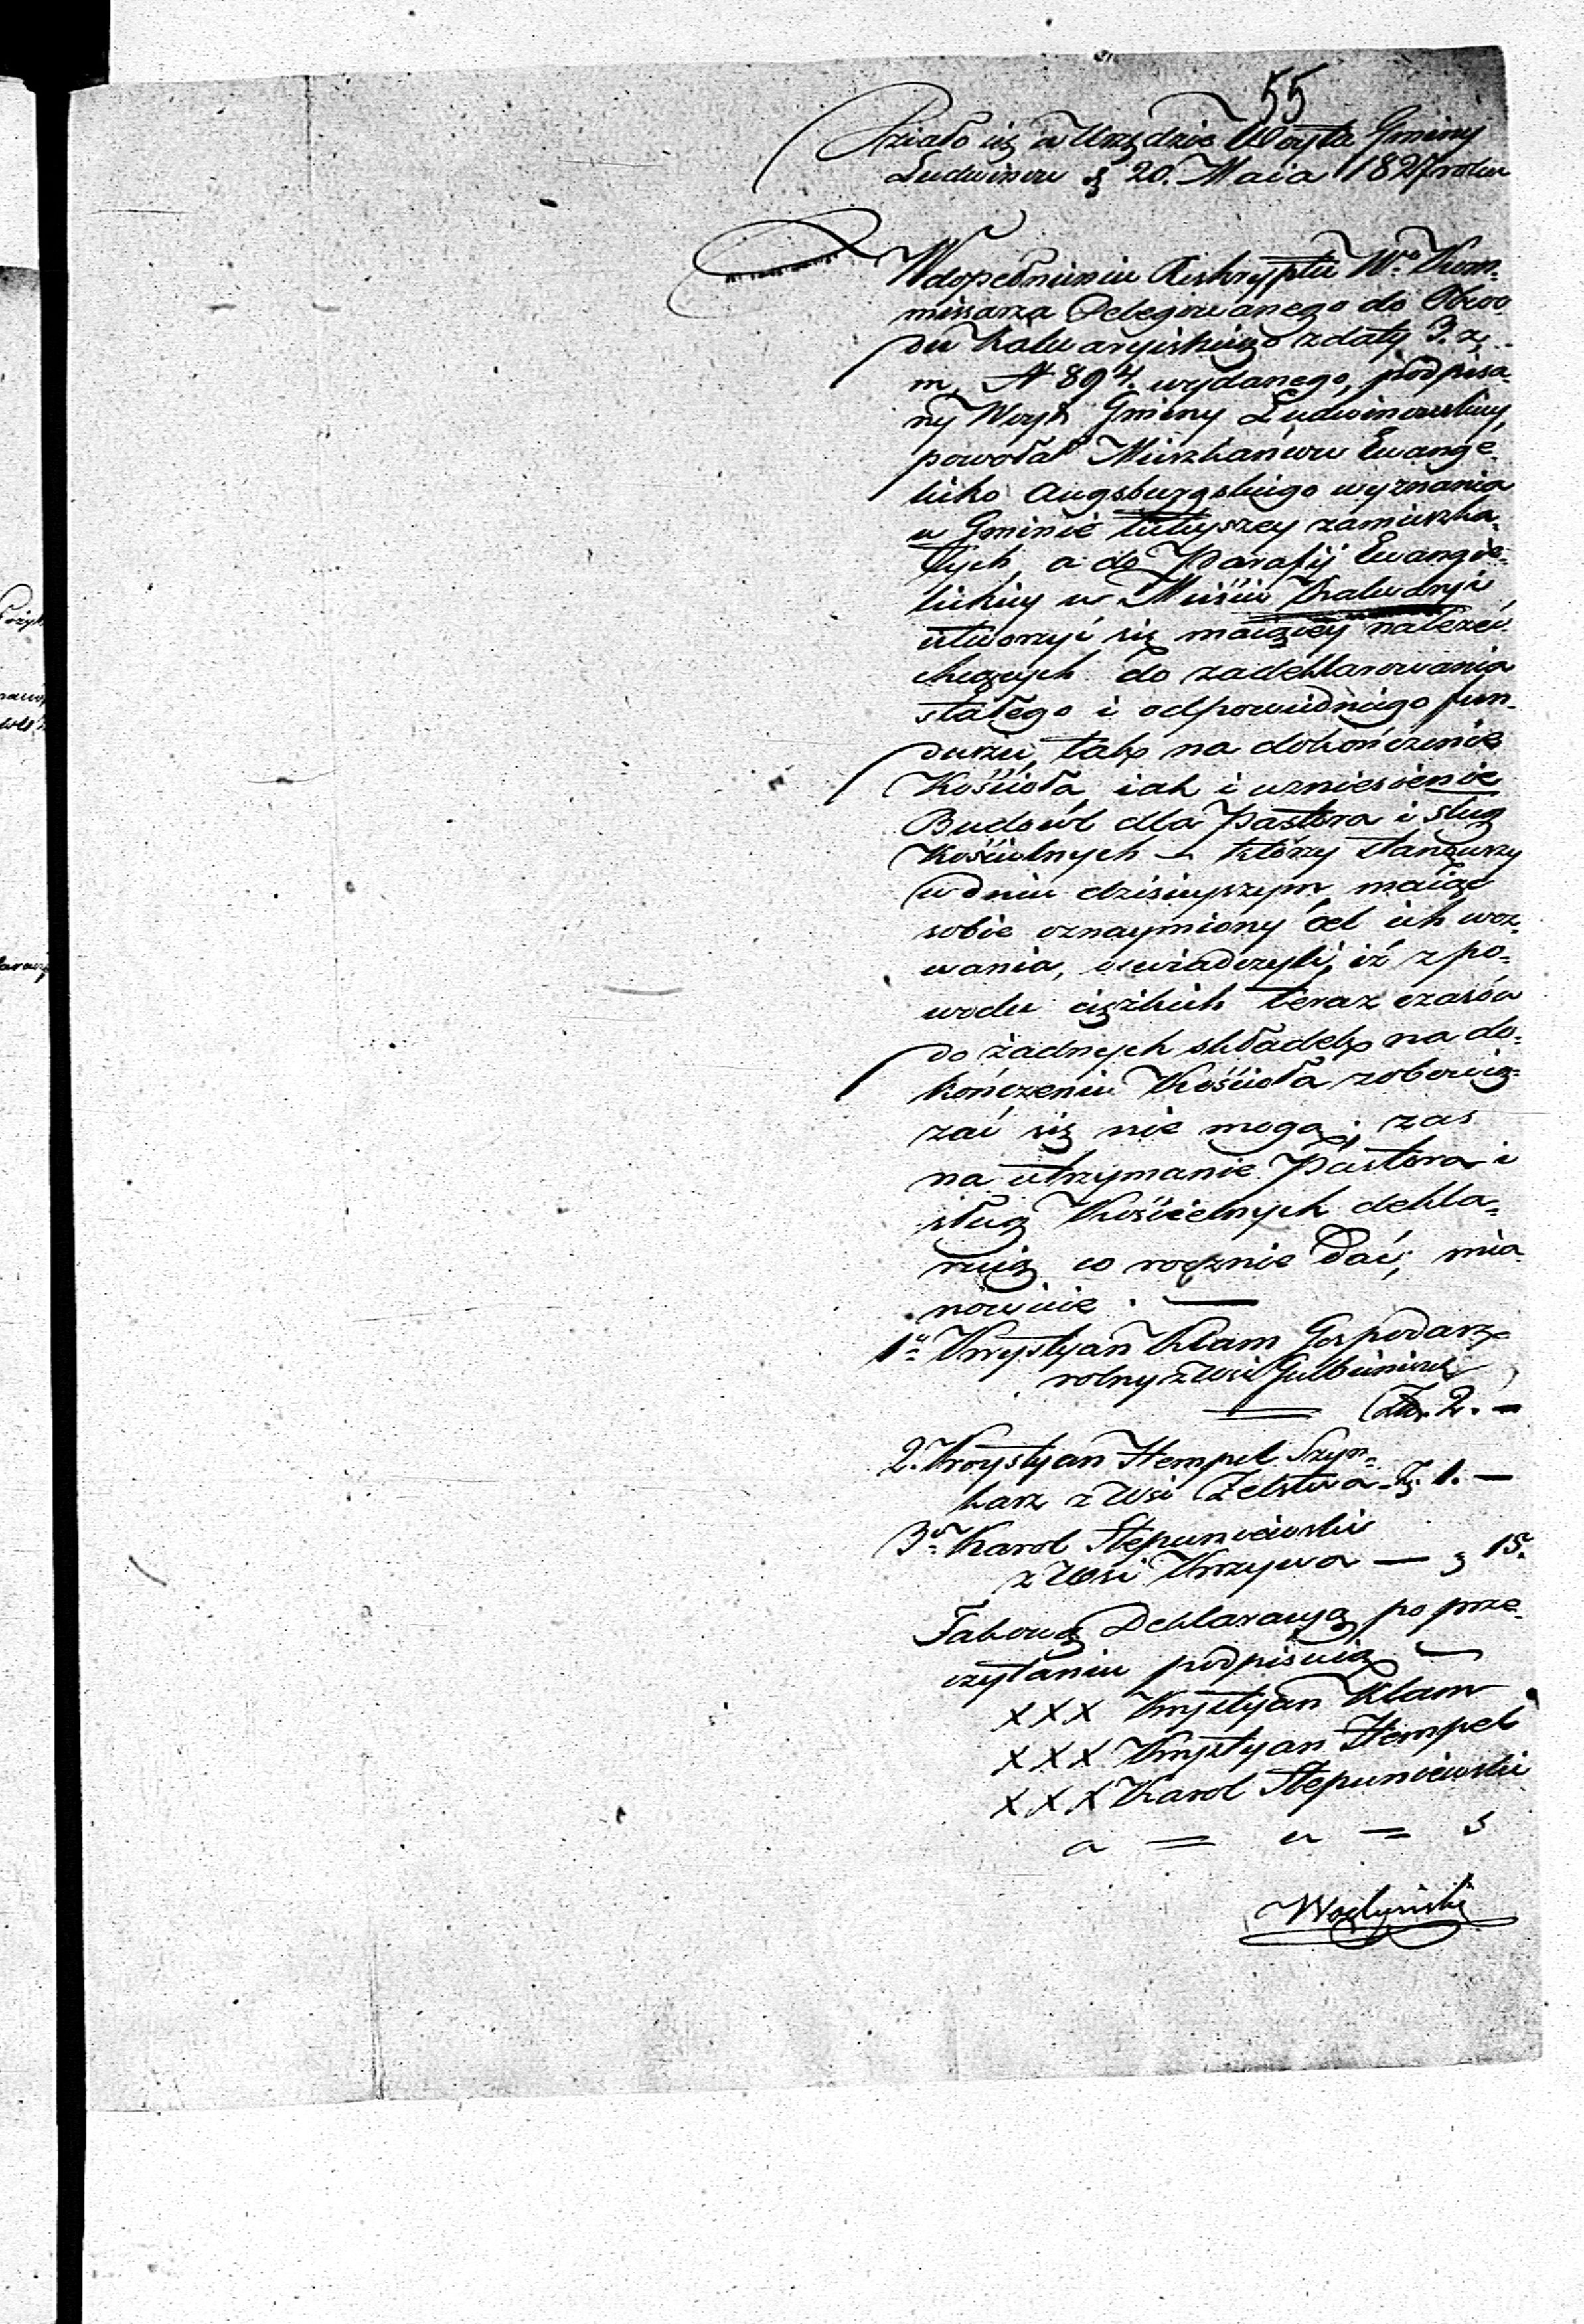 55
Działo się w Urzędzie Woyta Gminy
Ludwinow d. 20. Maia 1827 roku
W dopełnieniu Reskryptu Wo. Kom=
missarza Delegowanego do Obwo
du Kalwaryiskiego z daty 3. z.
m. N 894. wydanego, podpisa=
ny Woyt Gminy Ludwinowskiey,
powołał Mieszkańców Ewange=
licko Augsburgskiego wyznania
w Gminie tuteyszey zamieszka=
łych, a do Parafij Ewangie=
lickiey w Mieście Kalwaryi
utworzyć się maiącey należeć
chcących do zadeklarowania
stałego i odpowiedniego fun=
duszu, tak na dokończenie
Kościoła, iak i wzniesienie
Budowl dla Pastora i sług
Kościelnych – którzy stanąwszy
w dniu dzisieyszym, maiąc
sobie oznaymiony cel ich wez=
wania, oswiadczyli, iż z po=
wodu ciężkich teraz czasów
do żadnych składek na do=
kończeniu Kościoła zobowią=
zać się nie mogą; zas
na utrzymanie Pastora i
sług Kościelnych dekla=
ruią co rocznie dać; mia=
nowicie. —
1o Krystyan Klam Gospodarz
rolny z Wsi
Złp. 2. —
2. Krystyan Hempel Szyn=
karz z Wsi Żelstwa – Zł. 1. —
3o Karol Stepuniewski
z Wsi Krzywa — 15.
Takową Deklaracyą po prze=
czytaniu podpisuią —
XXX Krystyan Klam
XXX Krystyan Hempel
XXX Karol Stepuniewski
a = u = s